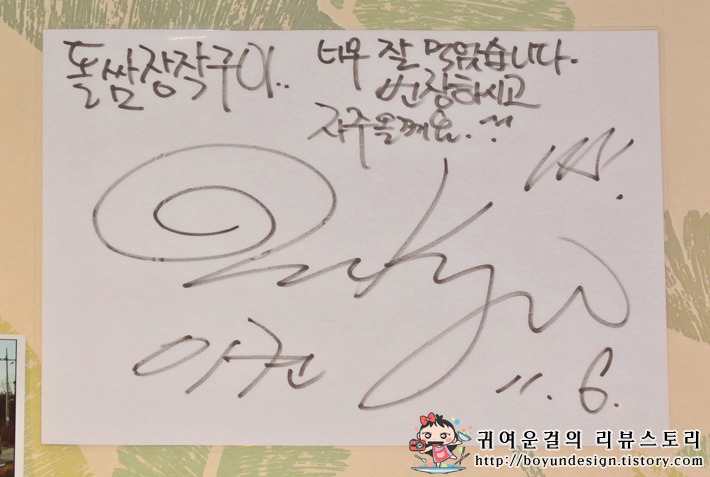 돌쌈장작구이.. 너무 잘 먹었습니다.
번창하시고
자주올께요.^^
11. 6.
귀여운걸의 리뷰스토리
http://boyundesign.tistory.com